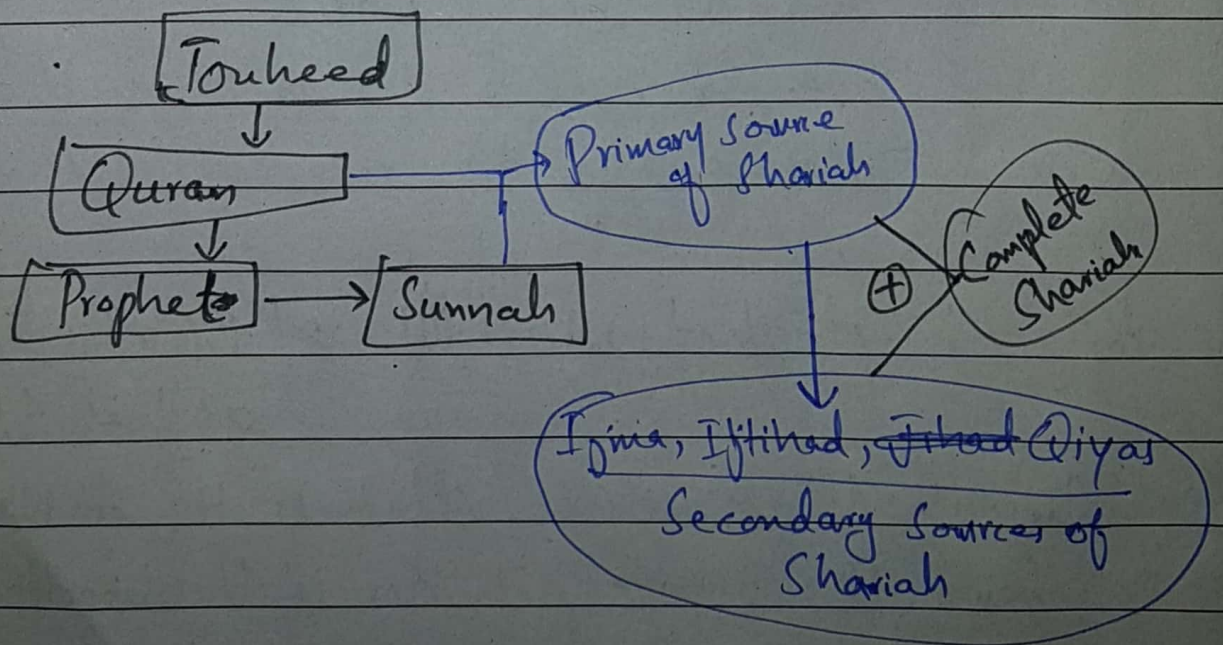 Touheed
Quran
Prophet
Sunnah
Primary Source
of Shariah
Complete
Shariah
+
Ijma, Ijtihad, Jihad Qiyas
Secondary Sources of
Shariah